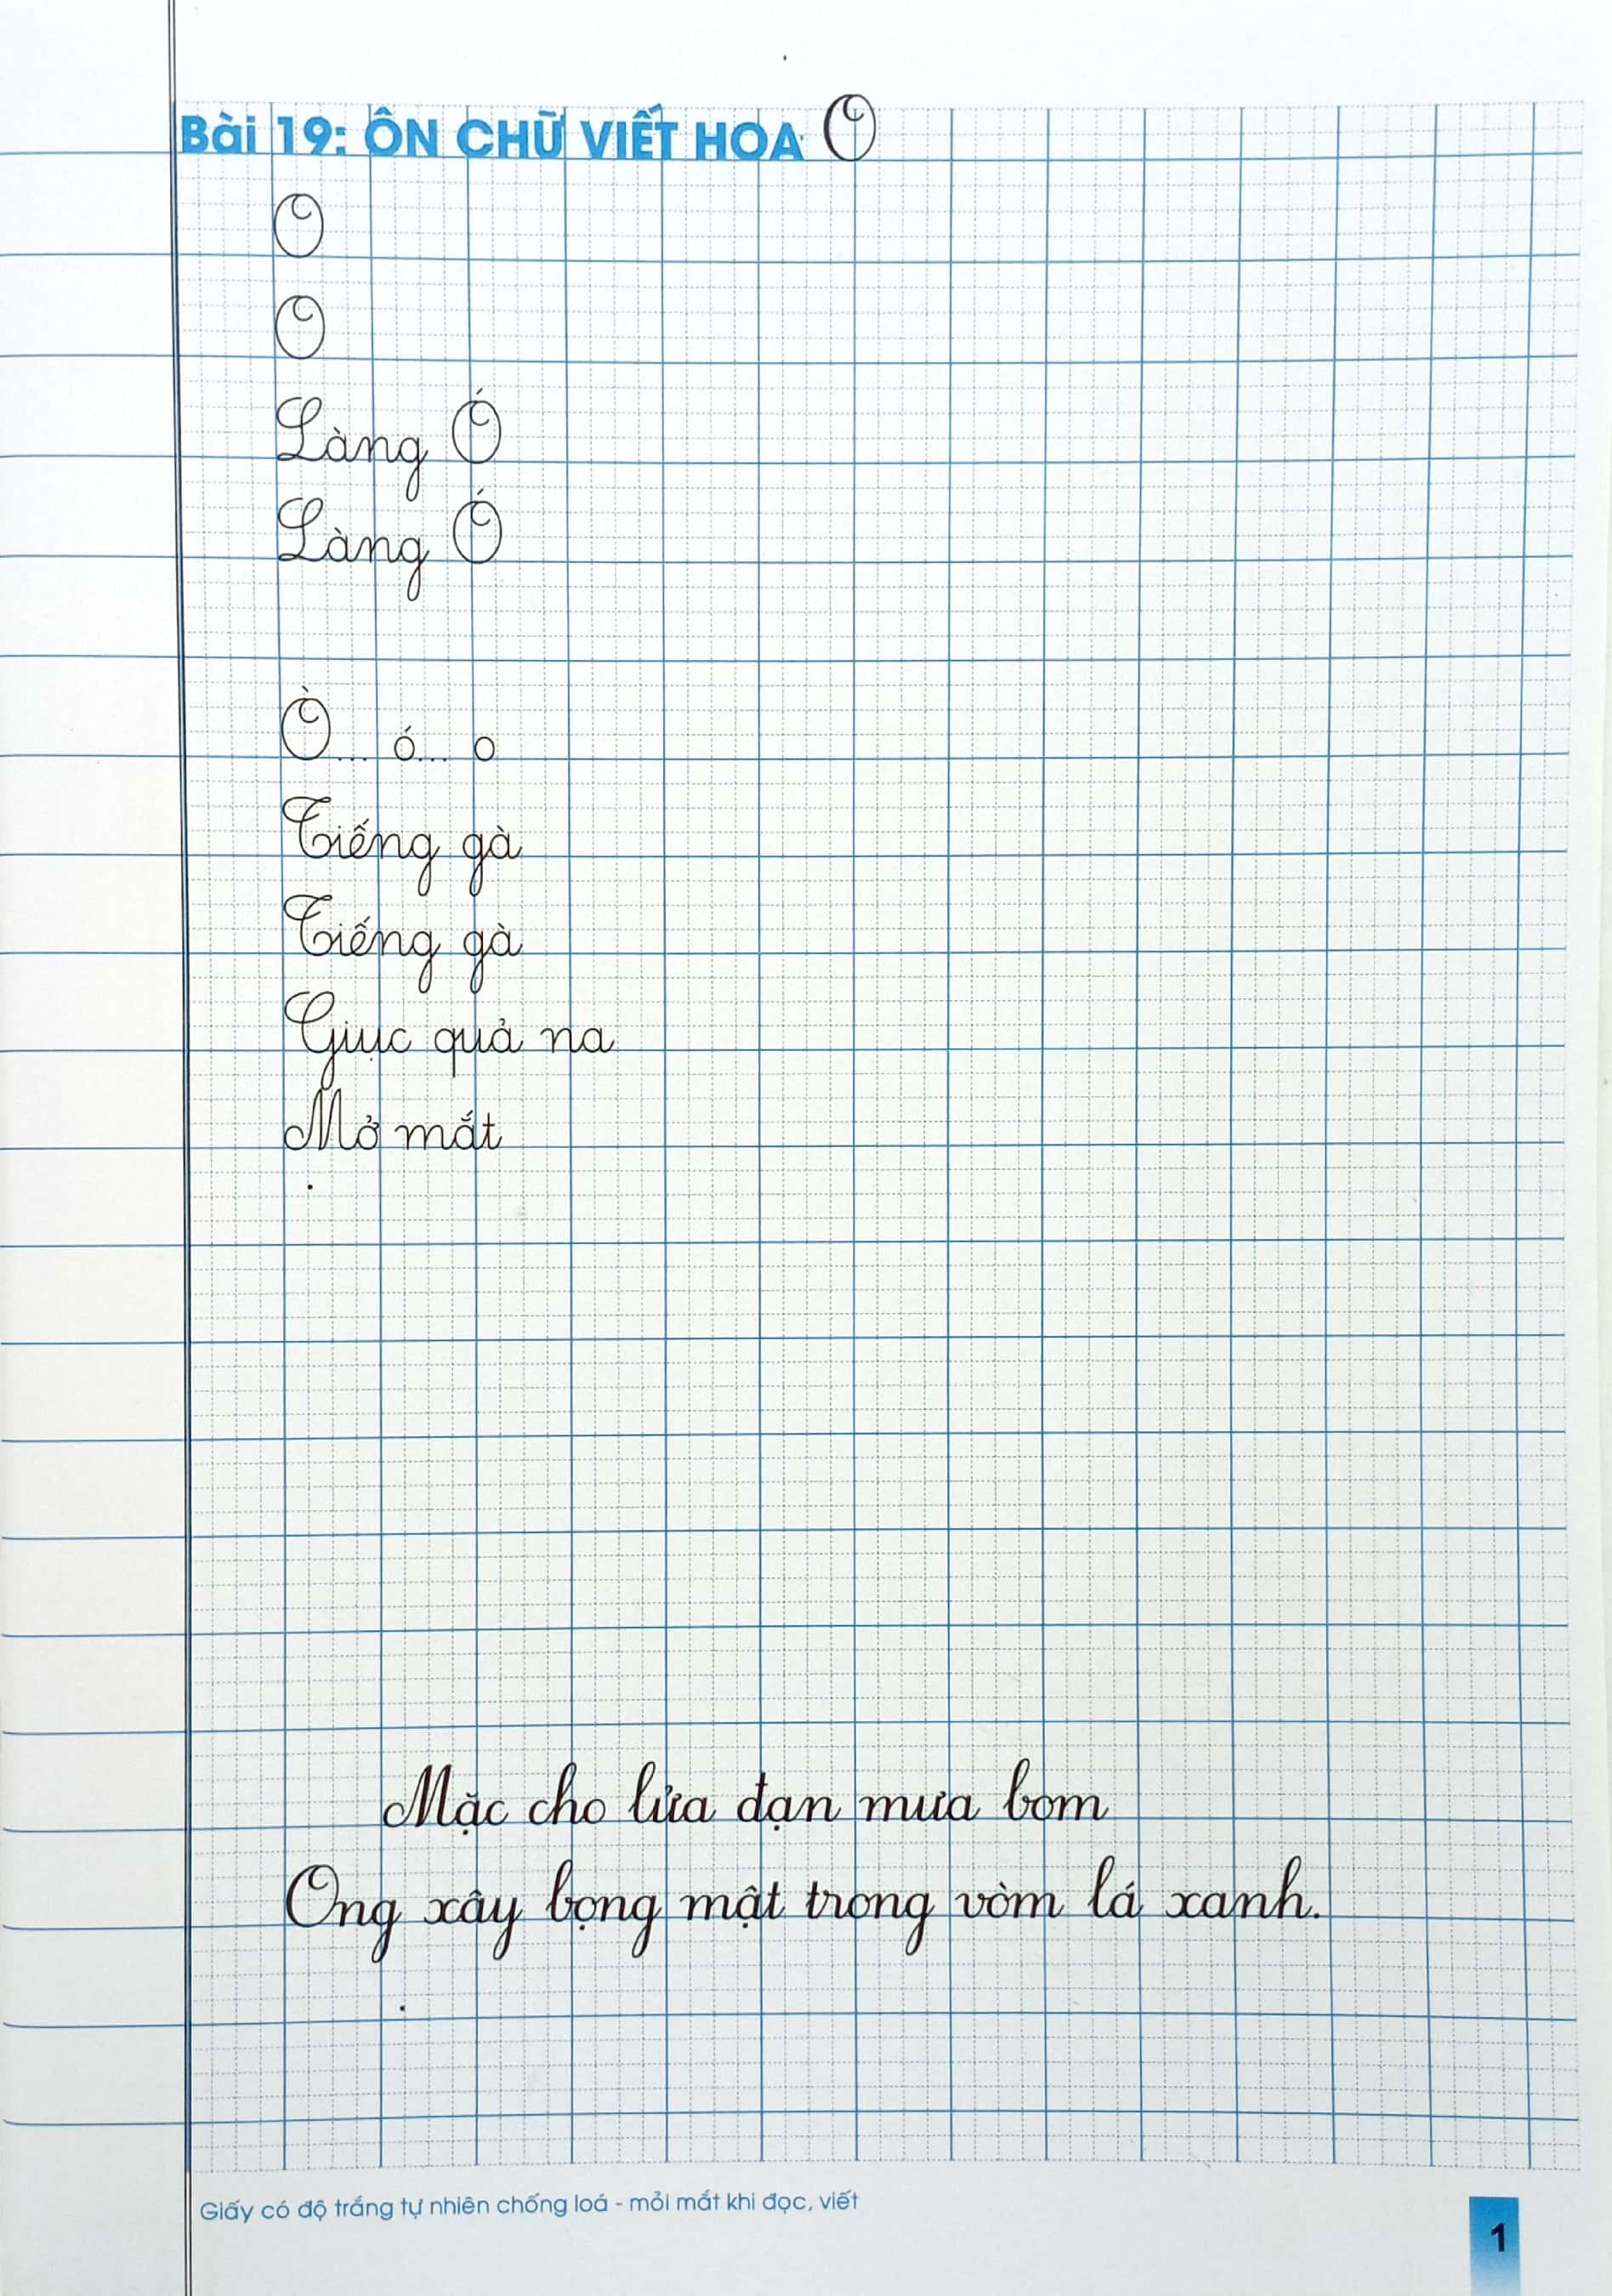 Bài 19: ÔN CHỮ VIẾT HOA O
O
O
Làng Ó
Làng Ó
Ò... ó... o
Tiếng gà
Tiếng gà
Giục quả na
Mở mắt
.
Mặc cho lửa đạn mưa bom
Ong xây bọng mật trong vòm lá xanh.
.
Giấy có độ trắng tự nhiên chống loá - mỏi mắt khi đọc, viết
1